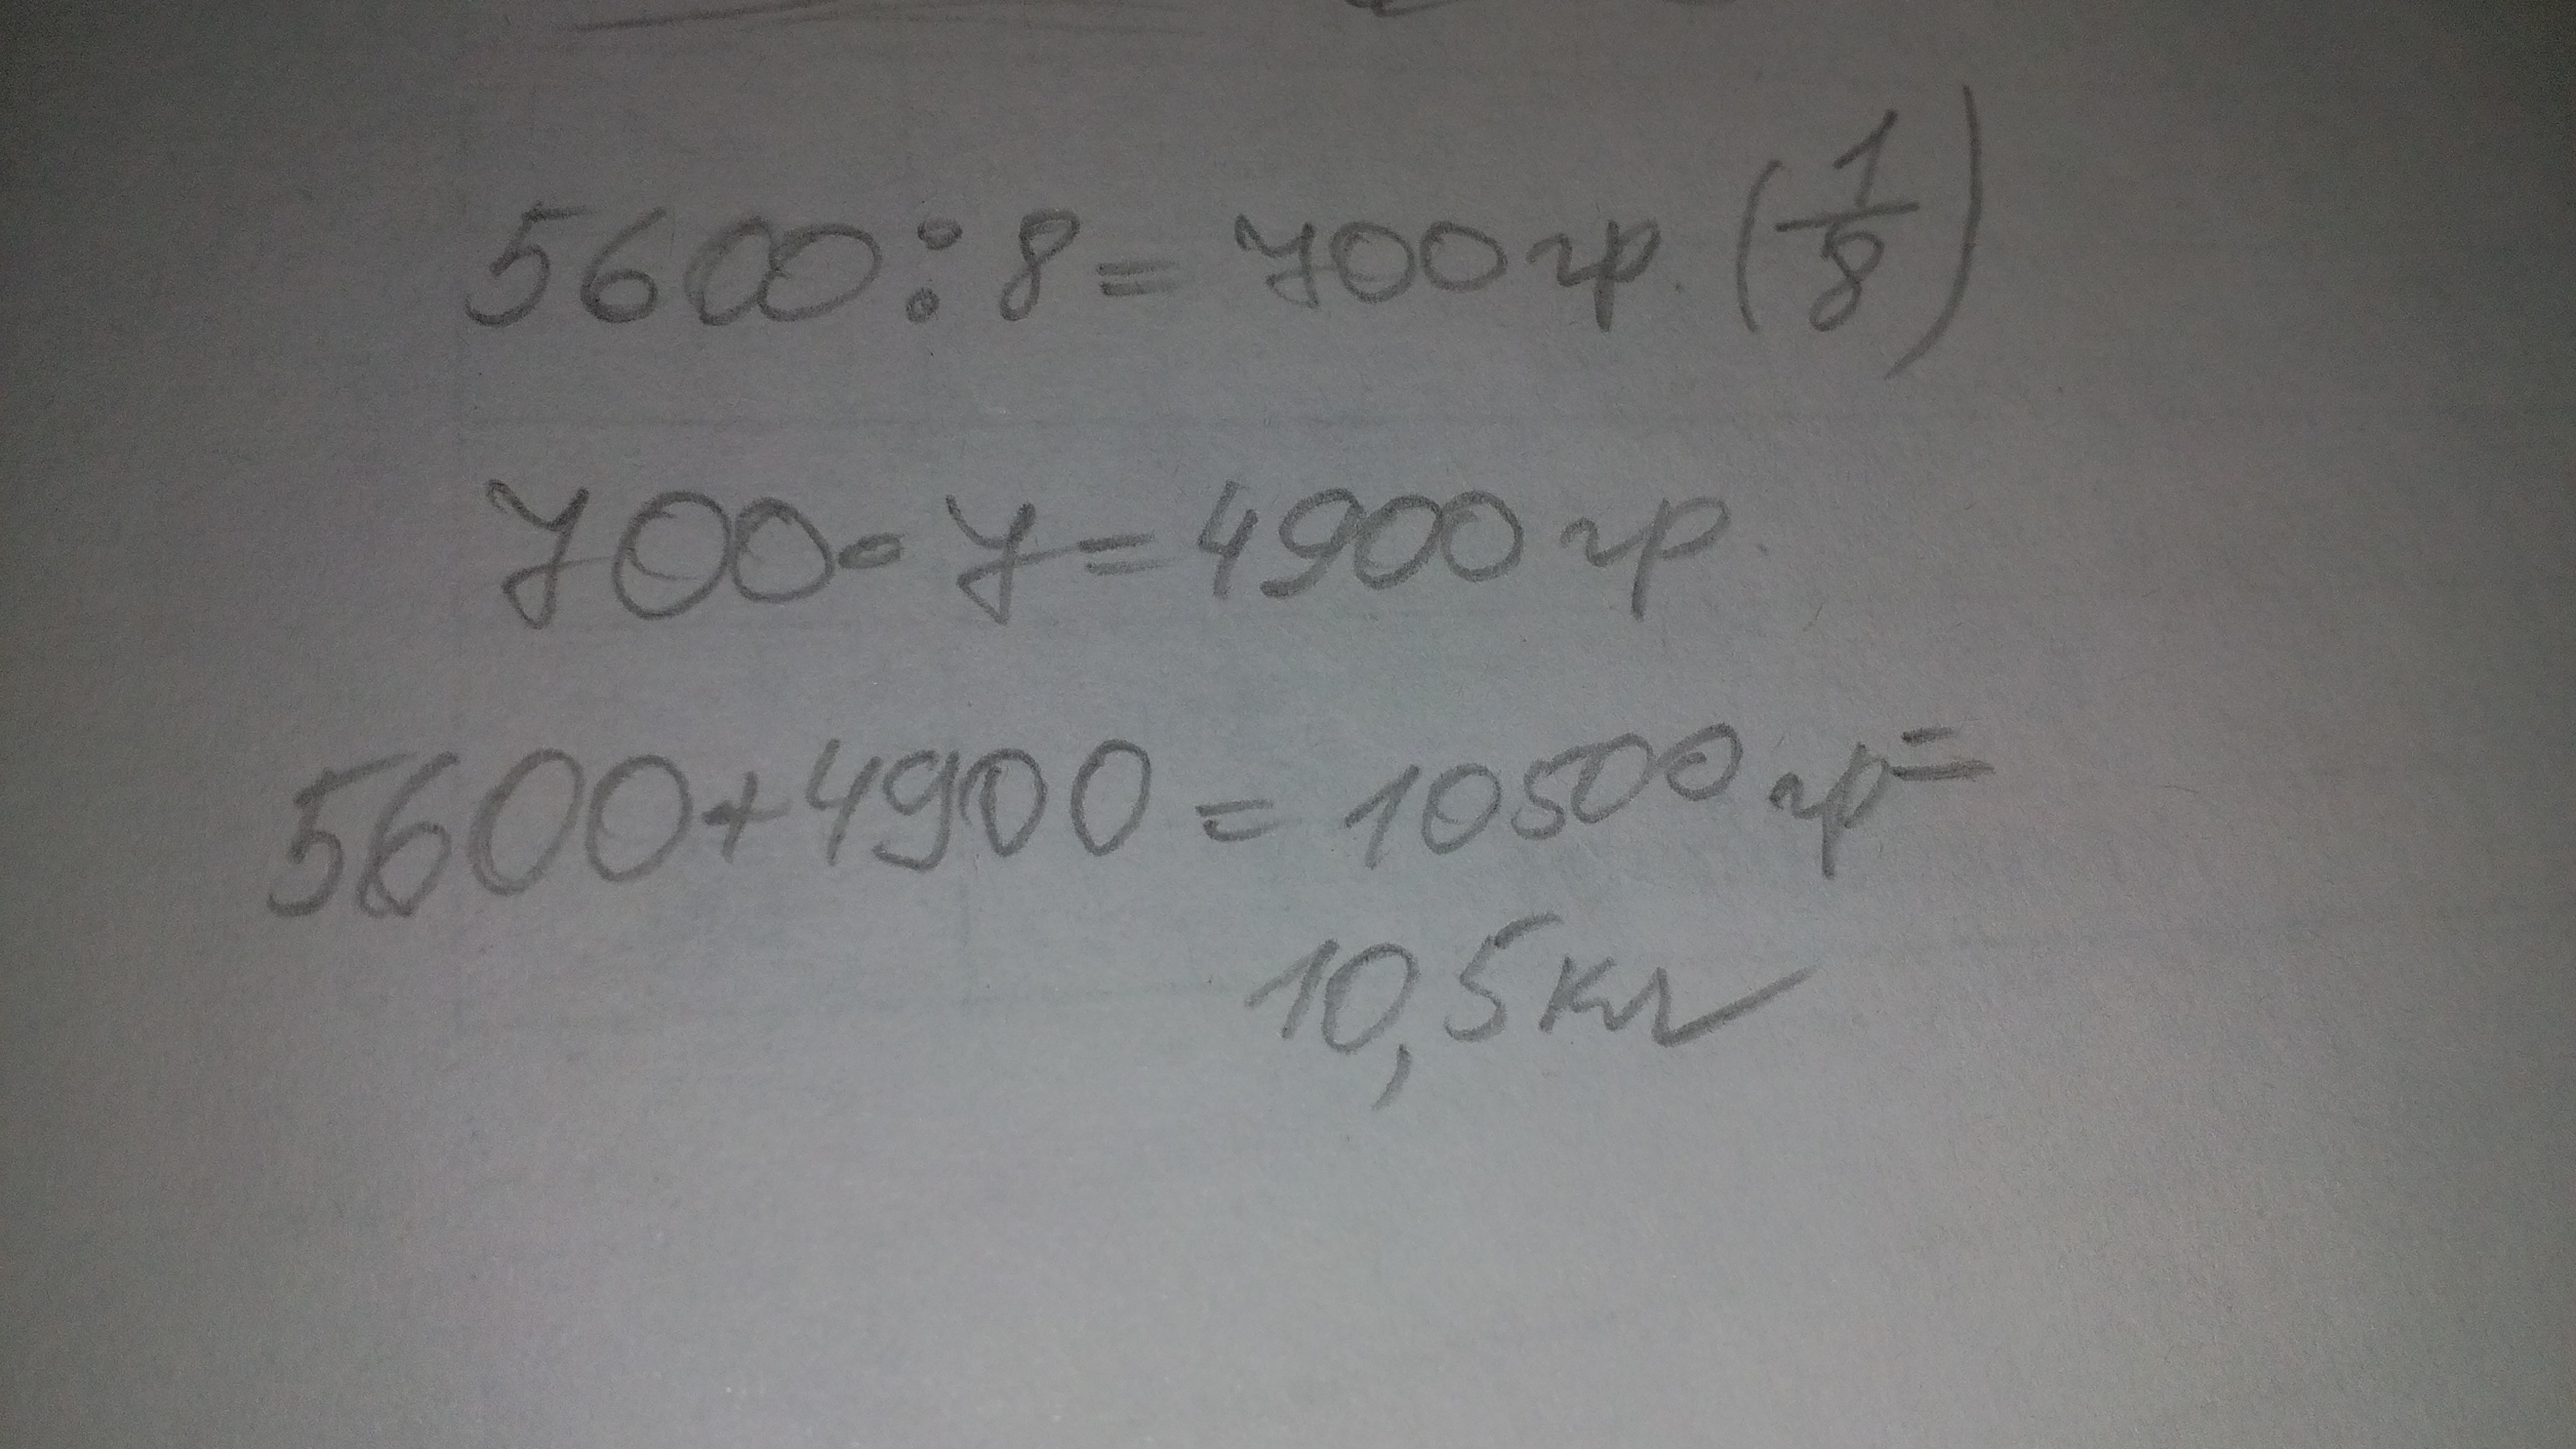 5600 : 8 = 700 гр. (1/8)
700 · 7 = 4900 гр.
5600 + 4900 = 10500 гр =
10,5 кг